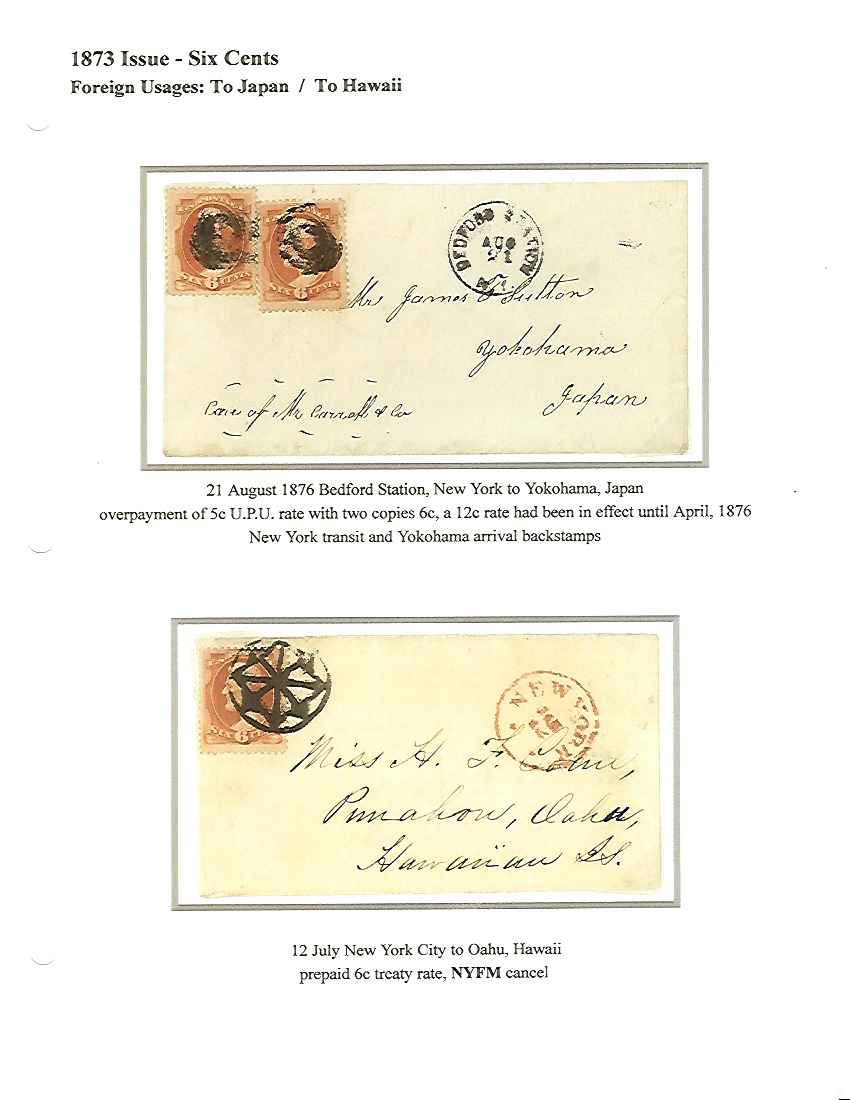 1873 Issue - Six Cents
Foreign Usages: To Japan / To Hawaii
SIX 6 CENTS
SIX 6 CENTS
BEDFORD STATION
AUG
21
N.Y.
Mr James S Sutton
Yokohama
Japan
Care of Mr Carroll & Co
21 August 1876 Bedford Station, New York to Yokohama, Japan
overpayment of 5c U.P.U. rate with two copies 6c, a 12c rate had been in effect until April, 1876
New York transit and Yokohama arrival backstamps
SIX 6
NEW YORK
Miss H. F.
Punahou, Oahu,
Hawaiian IS.
12 July New York City to Oahu, Hawaii
prepaid 6c treaty rate, NYFM cancel